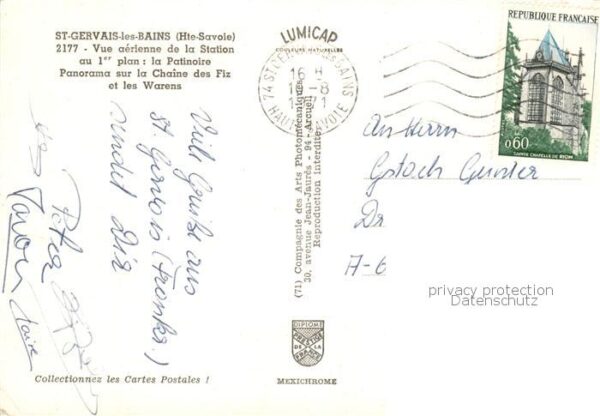 ST-GERVAIS-les-BAINS (Hte-Savoie)
2177 - Vue aérienne de la Station
au 1er plan : la Patinoire
Panorama sur la Chaîne des Fiz
et les Warens
LUMICAP
COULEURS NATURELLES
REPUBLIQUE FRANÇAISE
0,60
SAINTE CHAPELLE DE RIOM
74 ST
BAINS
HAUTE SAVOIE
Viele Grüße aus
St. Gervais (Frankr.)
sendet Dir
Peter
Claire
(71) Compagnie des Arts Photomécaniques
30, avenue Jean-Jaurès - 94-Arcueil
Reproduction interdite
An Herrn
Günter
Dr
A-6
privacy protection
Datenschutz
DIPLOME
PRESTIGE
DE LA
FRANCE
Collectionnez les Cartes Postales !
MEXICHROME